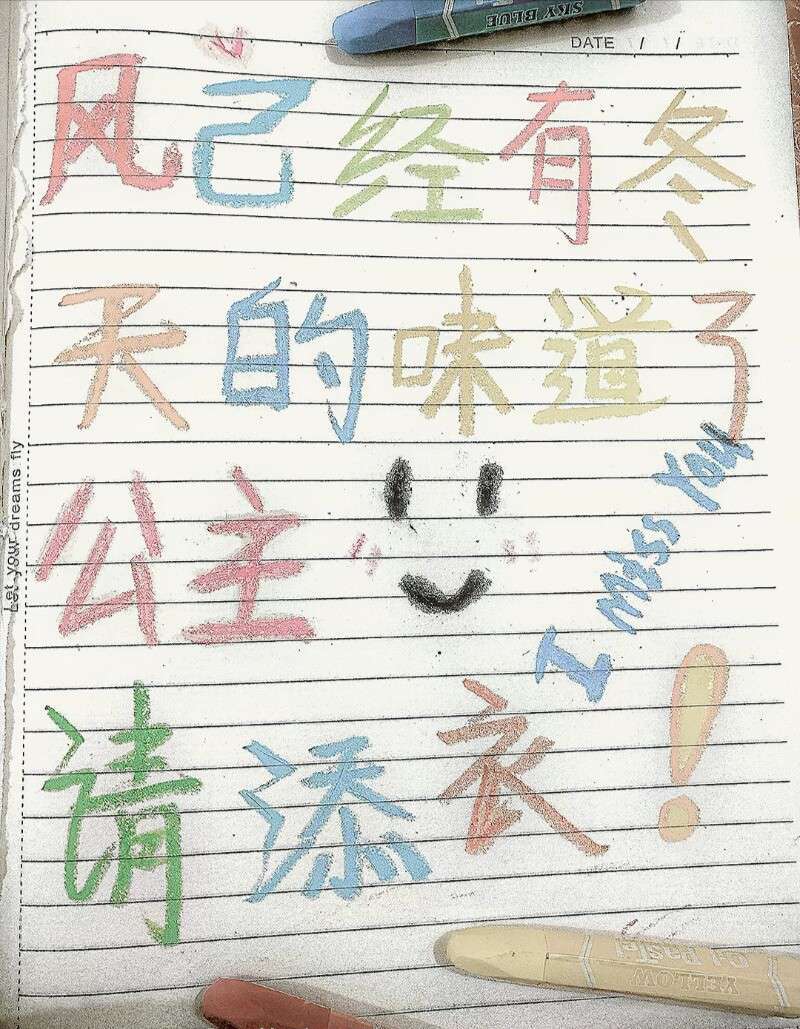 SKY BLUE
DATE / /
风已经有冬
天的味道了
公主
I Miss You
请添衣!
Let your dreams fly
YELLOW
Oil Pastel